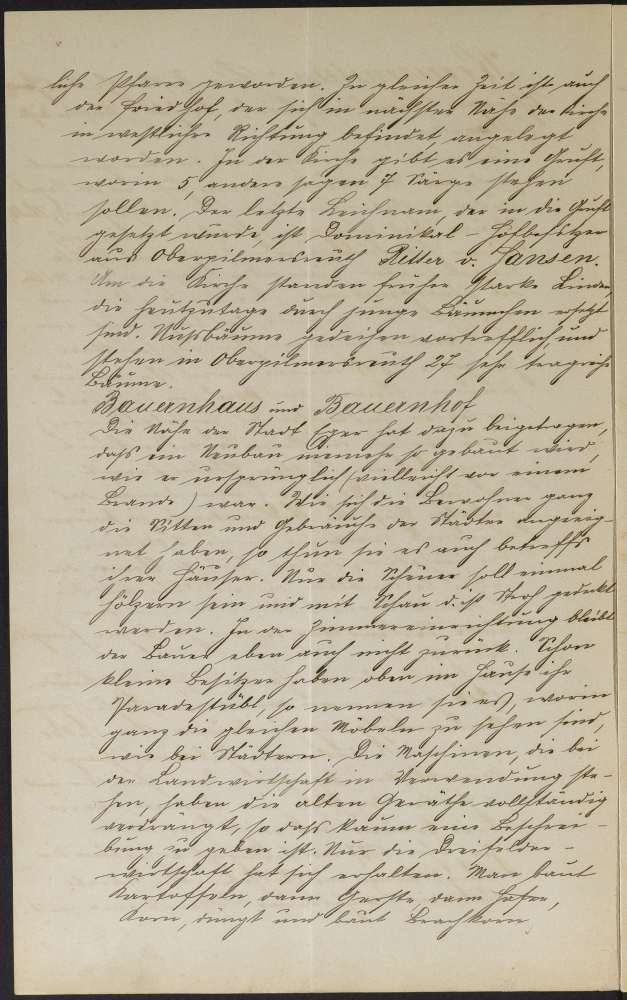 liche Pfarre geworden. In gleicher Zeit ist auch
der Friedhof, der sich in nächster Nähe der Kirche
in westlicher Richtung befindet angelegt
worden. In der Kirche gibt es eine Gruft,
worin 5, andere sagen 7 Särge stehen
sollen. Der letzte Leichnam, der in die Gruft
gesetzt wurde, ist Dominikal-Hofbesitzer
aus Oberpilmersreuth Ritter v. Jansen.
Um die Kirche standen früher starke Linden,
die heutzutage durch junge Bäumchen ersetzt
sind. Nussbäume gedeihen vortrefflich und
stehen in Oberpilmersreuth 27 sehr tragreiche
Bäume.
Bauernhaus und Bauernhof
Die Nähe der Stadt Eger hat dazu beigetragen,
dass ein Neubau nimmehr so gebaut wird,
wie er ursprünglich (vielleicht vor einem
Brande) war. Wie sich die Bewohner ganz
die Sitten und Gebräuche der Städter angeeig-
net haben, so thun sie es auch betreffs
ihrer Häuser. Nur die Scheuer soll einmal
hölzern sein und mit Schau d. ist Stroh gedeckt
werden. In der Zimmereinrichtung bleibt
der Bauer eben auch nicht zurück. Schon
kleine Besitzer haben oben im Hause ihr
Paradestübl, so nennen sie es, worin
ganz die gleichen Möbeln zu sehen sind,
wie bei Städtern. Die Maschinen, die bei
der Landwirtschaft in Verwendung ste-
hen, haben die alten Geräthe vollständig
verdrängt, so dass kaum eine Beschrei-
bung zu geben ist. Nur die Dreifelder-
wirtschaft hat sich erhalten. Man baut
Kartoffeln, dann Gerste, dann Hafer,
Korn, düngt und baut Brachkorn,